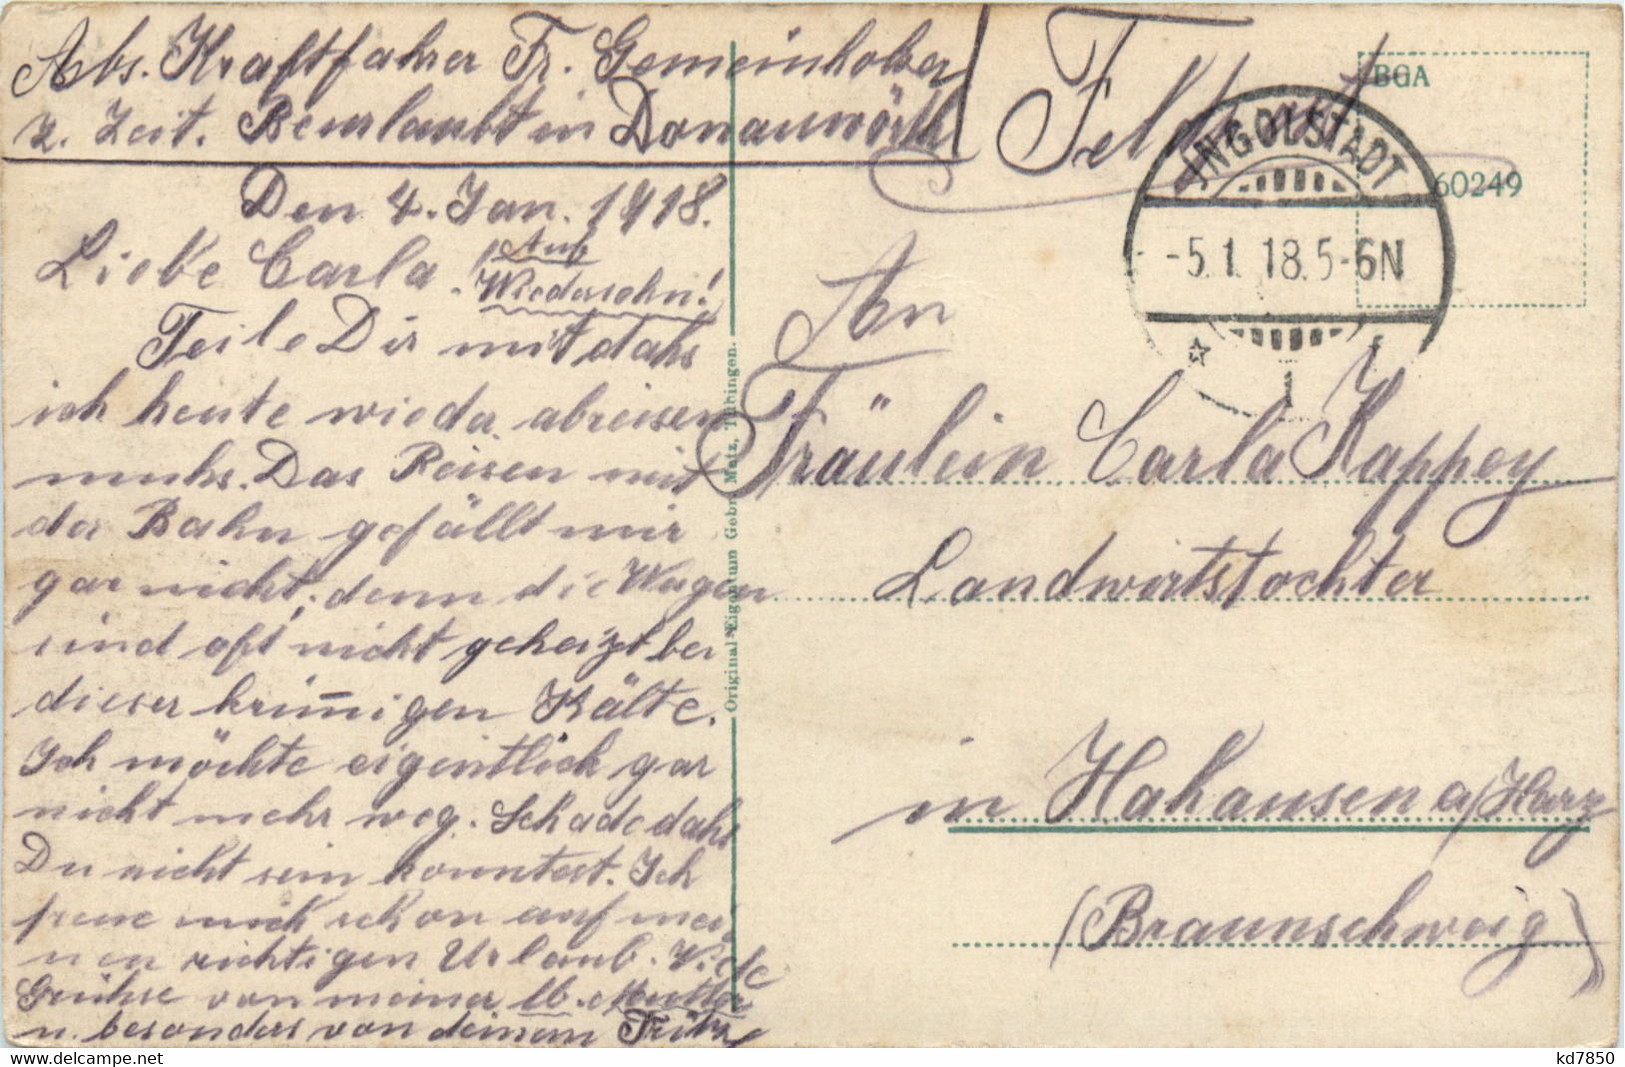 Abs. Kraftfahrer Fr. Gemeinholzer
z. Zeit. Beurlaubt in Donauwörth
Den 4. Jan. 1918.
Liebe Carla!
Auf
Wiedersehn!
Teile Dir mit dahs
ich heute wieder abreisen
muhs. Das Reisen mit
der Bahn gefällt mir
gar nicht, denn die Wagen
sind oft nicht geheizt bei
dieser krim̅igen Kälte.
Ich möchte eigentlich gar
nicht mehr weg. Schade dahs
Du nicht sein konntest. Ich
freue mich schon auf mei
nen richtigen Urlaub. Viele
Grühse von meiner lb. Mutter
u. besonders von deinem Fritz
Original-Eigentum Gebr. Metz, Tübingen.
Feldpost
BGA
60249
INGOLSTADT
-5.1.18.5-6N
An
Fräulein Carla Kappey
Landwirtstochter
in Hahausen a/Harz
(Braunschweig)
https://www.delcampe.net
kd7850